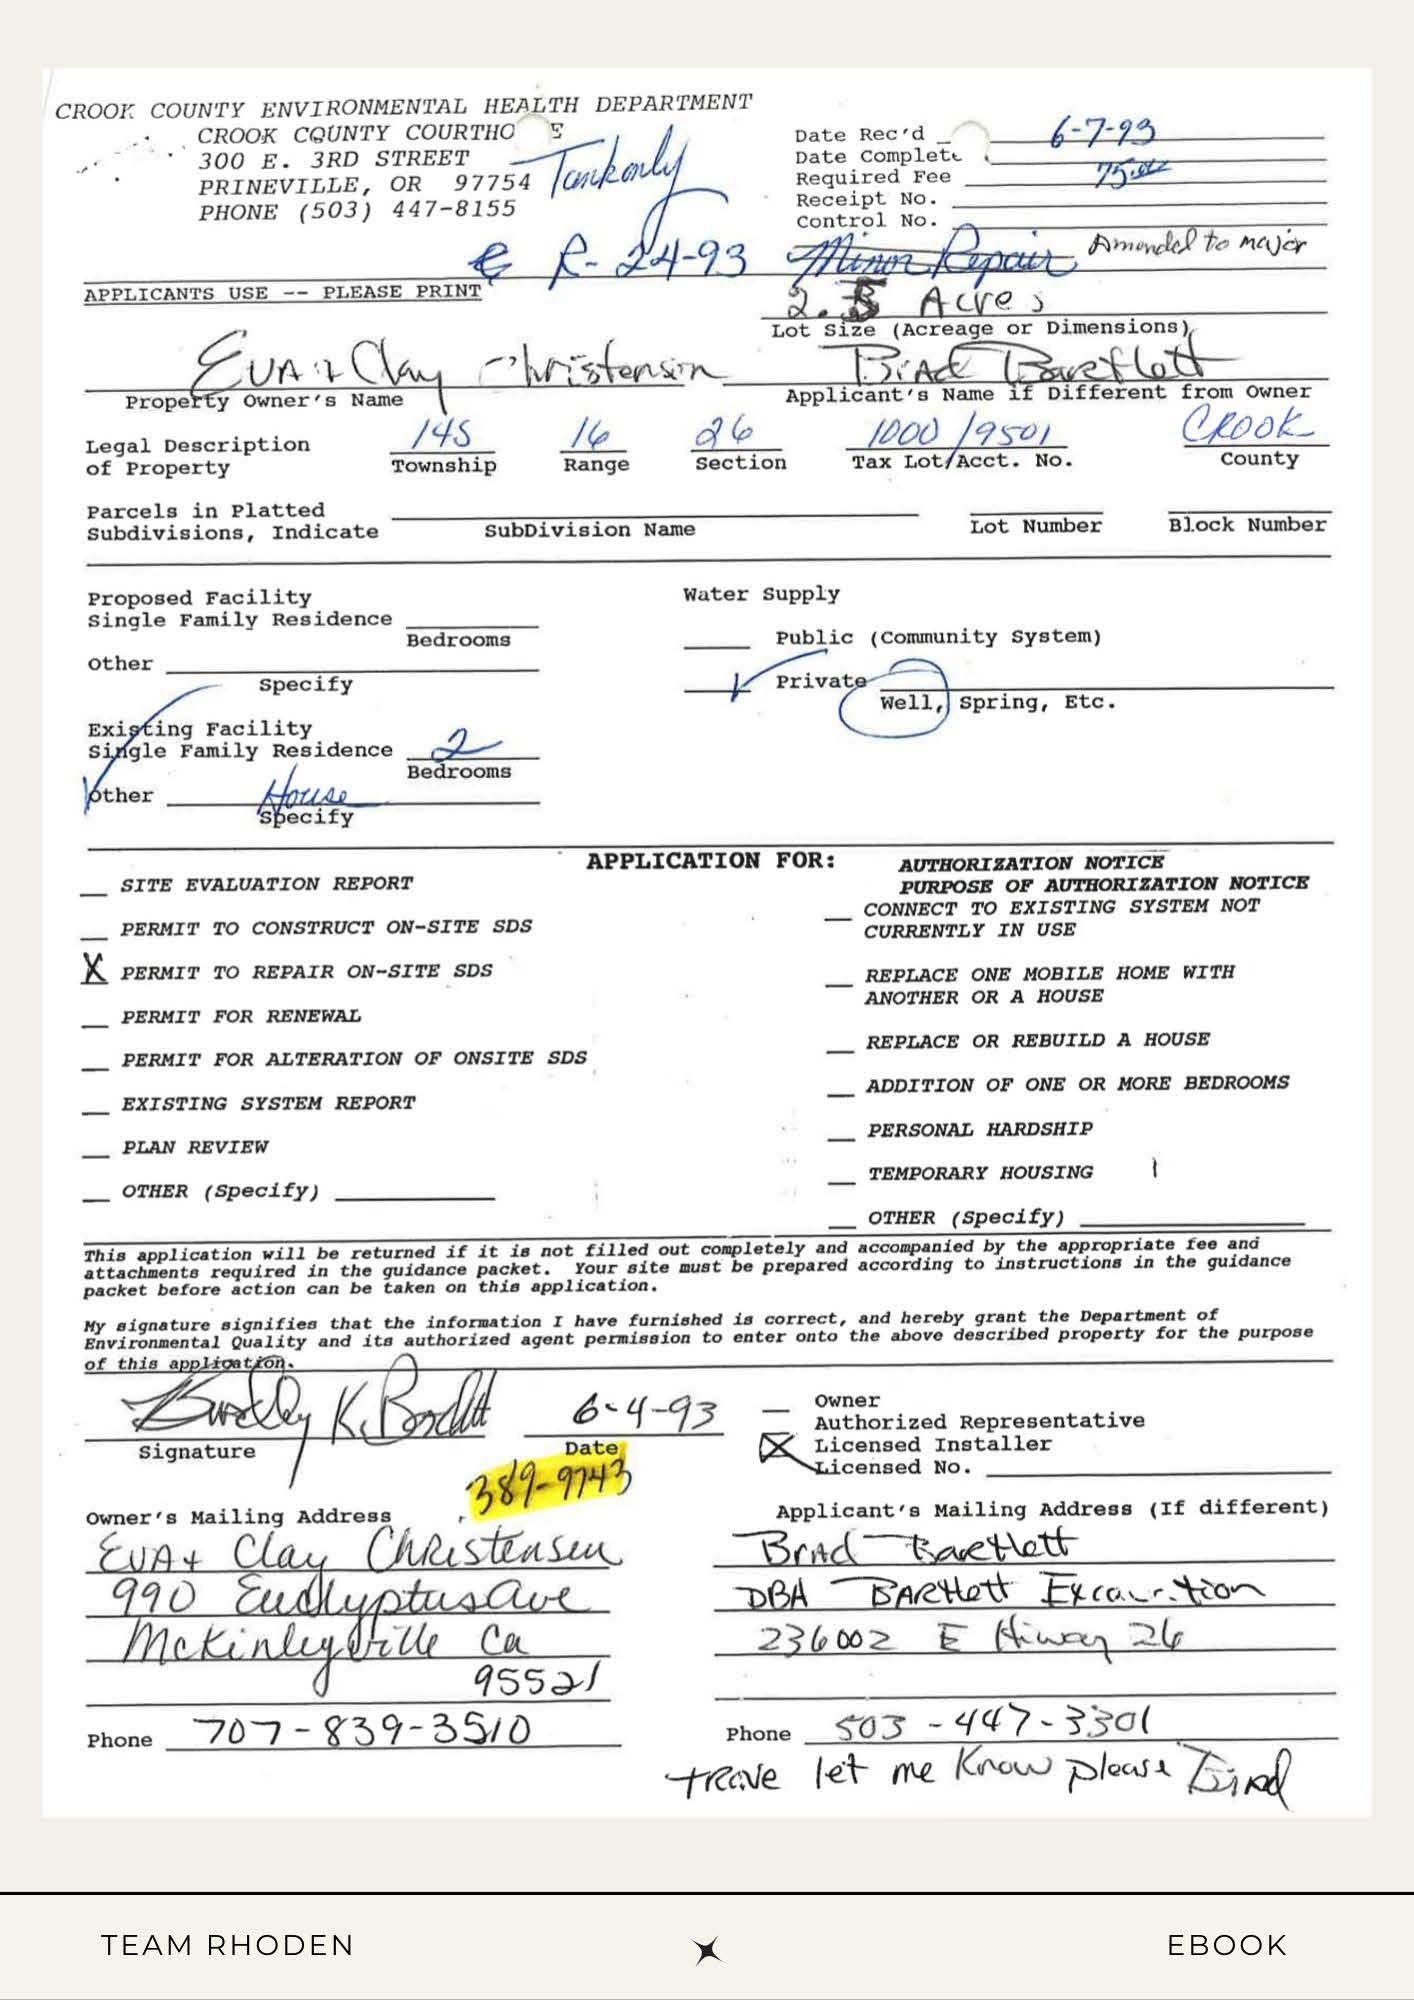 CROOK COUNTY ENVIRONMENTAL HEALTH DEPARTMENT
CROOK COUNTY COURTHO E
300 E. 3RD STREET
PRINEVILLE, OR 97754
PHONE (503) 447-8155
Tank only
Date Rec'd 6-7-93
Date Complete
Required Fee 75.00
Receipt No.
Control No.
R-24-93 Minor Repair Amended to major
APPLICANTS USE -- PLEASE PRINT
2. Acres
Lot Size (Acreage or Dimensions)
Eva + Clay Christensen Brad Bartlett
Property Owner's Name Applicant's Name if Different from Owner
Legal Description of Property
14S 16 26 1000/9501 CROOK
Township Range Section Tax Lot/Acct. No. County
Parcels in Platted
Subdivisions, Indicate SubDivision Name Lot Number Block Number
Proposed Facility
Single Family Residence
Bedrooms
Other
Specify
Existing Facility
Single Family Residence 2
Bedrooms
Other House
Specify
Water Supply
Public (Community System)
✓ Private
Well, Spring, Etc.
APPLICATION FOR:
SITE EVALUATION REPORT
PERMIT TO CONSTRUCT ON-SITE SDS
X PERMIT TO REPAIR ON-SITE SDS
PERMIT FOR RENEWAL
PERMIT FOR ALTERATION OF ONSITE SDS
EXISTING SYSTEM REPORT
PLAN REVIEW
OTHER (Specify)
AUTHORIZATION NOTICE
PURPOSE OF AUTHORIZATION NOTICE
CONNECT TO EXISTING SYSTEM NOT
CURRENTLY IN USE
REPLACE ONE MOBILE HOME WITH
ANOTHER OR A HOUSE
REPLACE OR REBUILD A HOUSE
ADDITION OF ONE OR MORE BEDROOMS
PERSONAL HARDSHIP
TEMPORARY HOUSING
OTHER (Specify)
This application will be returned if it is not filled out completely and accompanied by the appropriate fee and
attachments required in the guidance packet. Your site must be prepared according to instructions in the guidance
packet before action can be taken on this application.
My signature signifies that the information I have furnished is correct, and hereby grant the Department of
Environmental Quality and its authorized agent permission to enter onto the above described property for the purpose
of this application.
Bradley K. Bartlett 6-4-93
Signature Date
389-9743
Owner
Authorized Representative
X Licensed Installer
Licensed No.
Owner's Mailing Address
Eva + Clay Christensen
990 Eucalyptus Ave
McKinleyville Ca
95521
Phone 707-839-3510
Applicant's Mailing Address (If different)
Brad Bartlett
DBA Bartlett Excavation
236002 E Hiway 26
Phone 503-447-3301
let me know please Brad
TEAM RHODEN
EBOOK